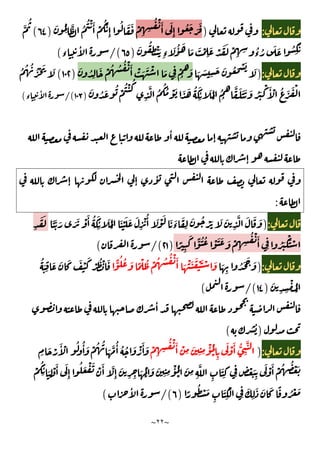 وقال تعالى: وفي قوله تعالى ( فَرَجَعُوا إِلَى أَنْفُسِهِمْ فَقَالُوا إِنَّكُمْ أَنْتُمُ الظَّالِمُونَ (٦٤) ثُمَّ
نُكِسُوا عَلَى رُءُوسِهِمْ لَقَدْ عَلِمْتَ مَا هَؤُلَاءِ يَنْطِقُونَ (٦٥) / سورة الأنبياء )
وقال تعالى: ( لَا يَسْمَعُونَ حَسِيسَهَا وَهُمْ فِي مَا اشْتَهَتْ أَنْفُسُهُمْ خَالِدُونَ (١٠٢) لَا يَحْزُنُهُمُ
الْفَزَعُ الْأَكْبَرُ وَتَتَلَقَّاهُمُ الْمَلَائِكَةُ هَذَا يَوْمُكُمُ الَّذِي كُنْتُمْ تُوعَدُونَ (١٠٣) / سورة الأنبياء )
فالنفس تشتهي وما تشتهيه إما معصية لله أو طاعة لله واتباع العبد نفسه في معصية الله
طاعة لنفسه هو إشراك بالله في الطاعة
وفي قوله تعالى يصف طاعة النفس التي تؤدي إلى الخسران لكونها إشراك بالله في
الطاعة:
قال تعالى: ( وَقَالَ الَّذِينَ لَا يَرْجُونَ لِقَاءَنَا لَوْلَا أُنْزِلَ عَلَيْنَا الْمَلَائِكَةُ أَوْ نَرَى رَبَّنَا لَقَدِ
اسْتَكْبَرُوا فِي أَنْفُسِهِمْ وَعَتَوْا عُتُوًّا كَبِيرًا (٢١) / سورة الفرقان )
وقال تعالى: ( وَجَحَدُوا بِهَا وَاسْتَيْقَنَتْهَا أَنْفُسُهُمْ ظُلْمًا وَعُلُوًّا فَانْظُرْ كَيْفَ كَانَ عَاقِبَةُ
الْمُفْسِدِينَ (١٤) / سورة النمل )
فالنفس الراضية بجحود طاعة الله لمصلحتها قد أشرك صاحبها بالله في طاعته وانضوى
تحت مدلول (يُشرك به)
وقال تعالى: ( النَّبِيُّ أَوْلَى بِالْمُؤْمِنِينَ مِنْ أَنْفُسِهِمْ وَأَزْوَاجُهُ أُمَّهَاتُهُمْ وَأُولُو الْأَرْحَامِ
بَعْضُهُمْ أَوْلَى بِبَعْضٍ فِي كِتَابِ اللَّهِ مِنَ الْمُؤْمِنِينَ وَالْمُهَاجِرِينَ إِلَّا أَنْ تَفْعَلُوا إِلَى أَوْلِيَائِكُمْ
مَعْرُوفًا كَانَ ذَلِكَ فِي الْكِتَابِ مَسْطُورًا (٦) / سورة الأحزاب )
~٢٢~